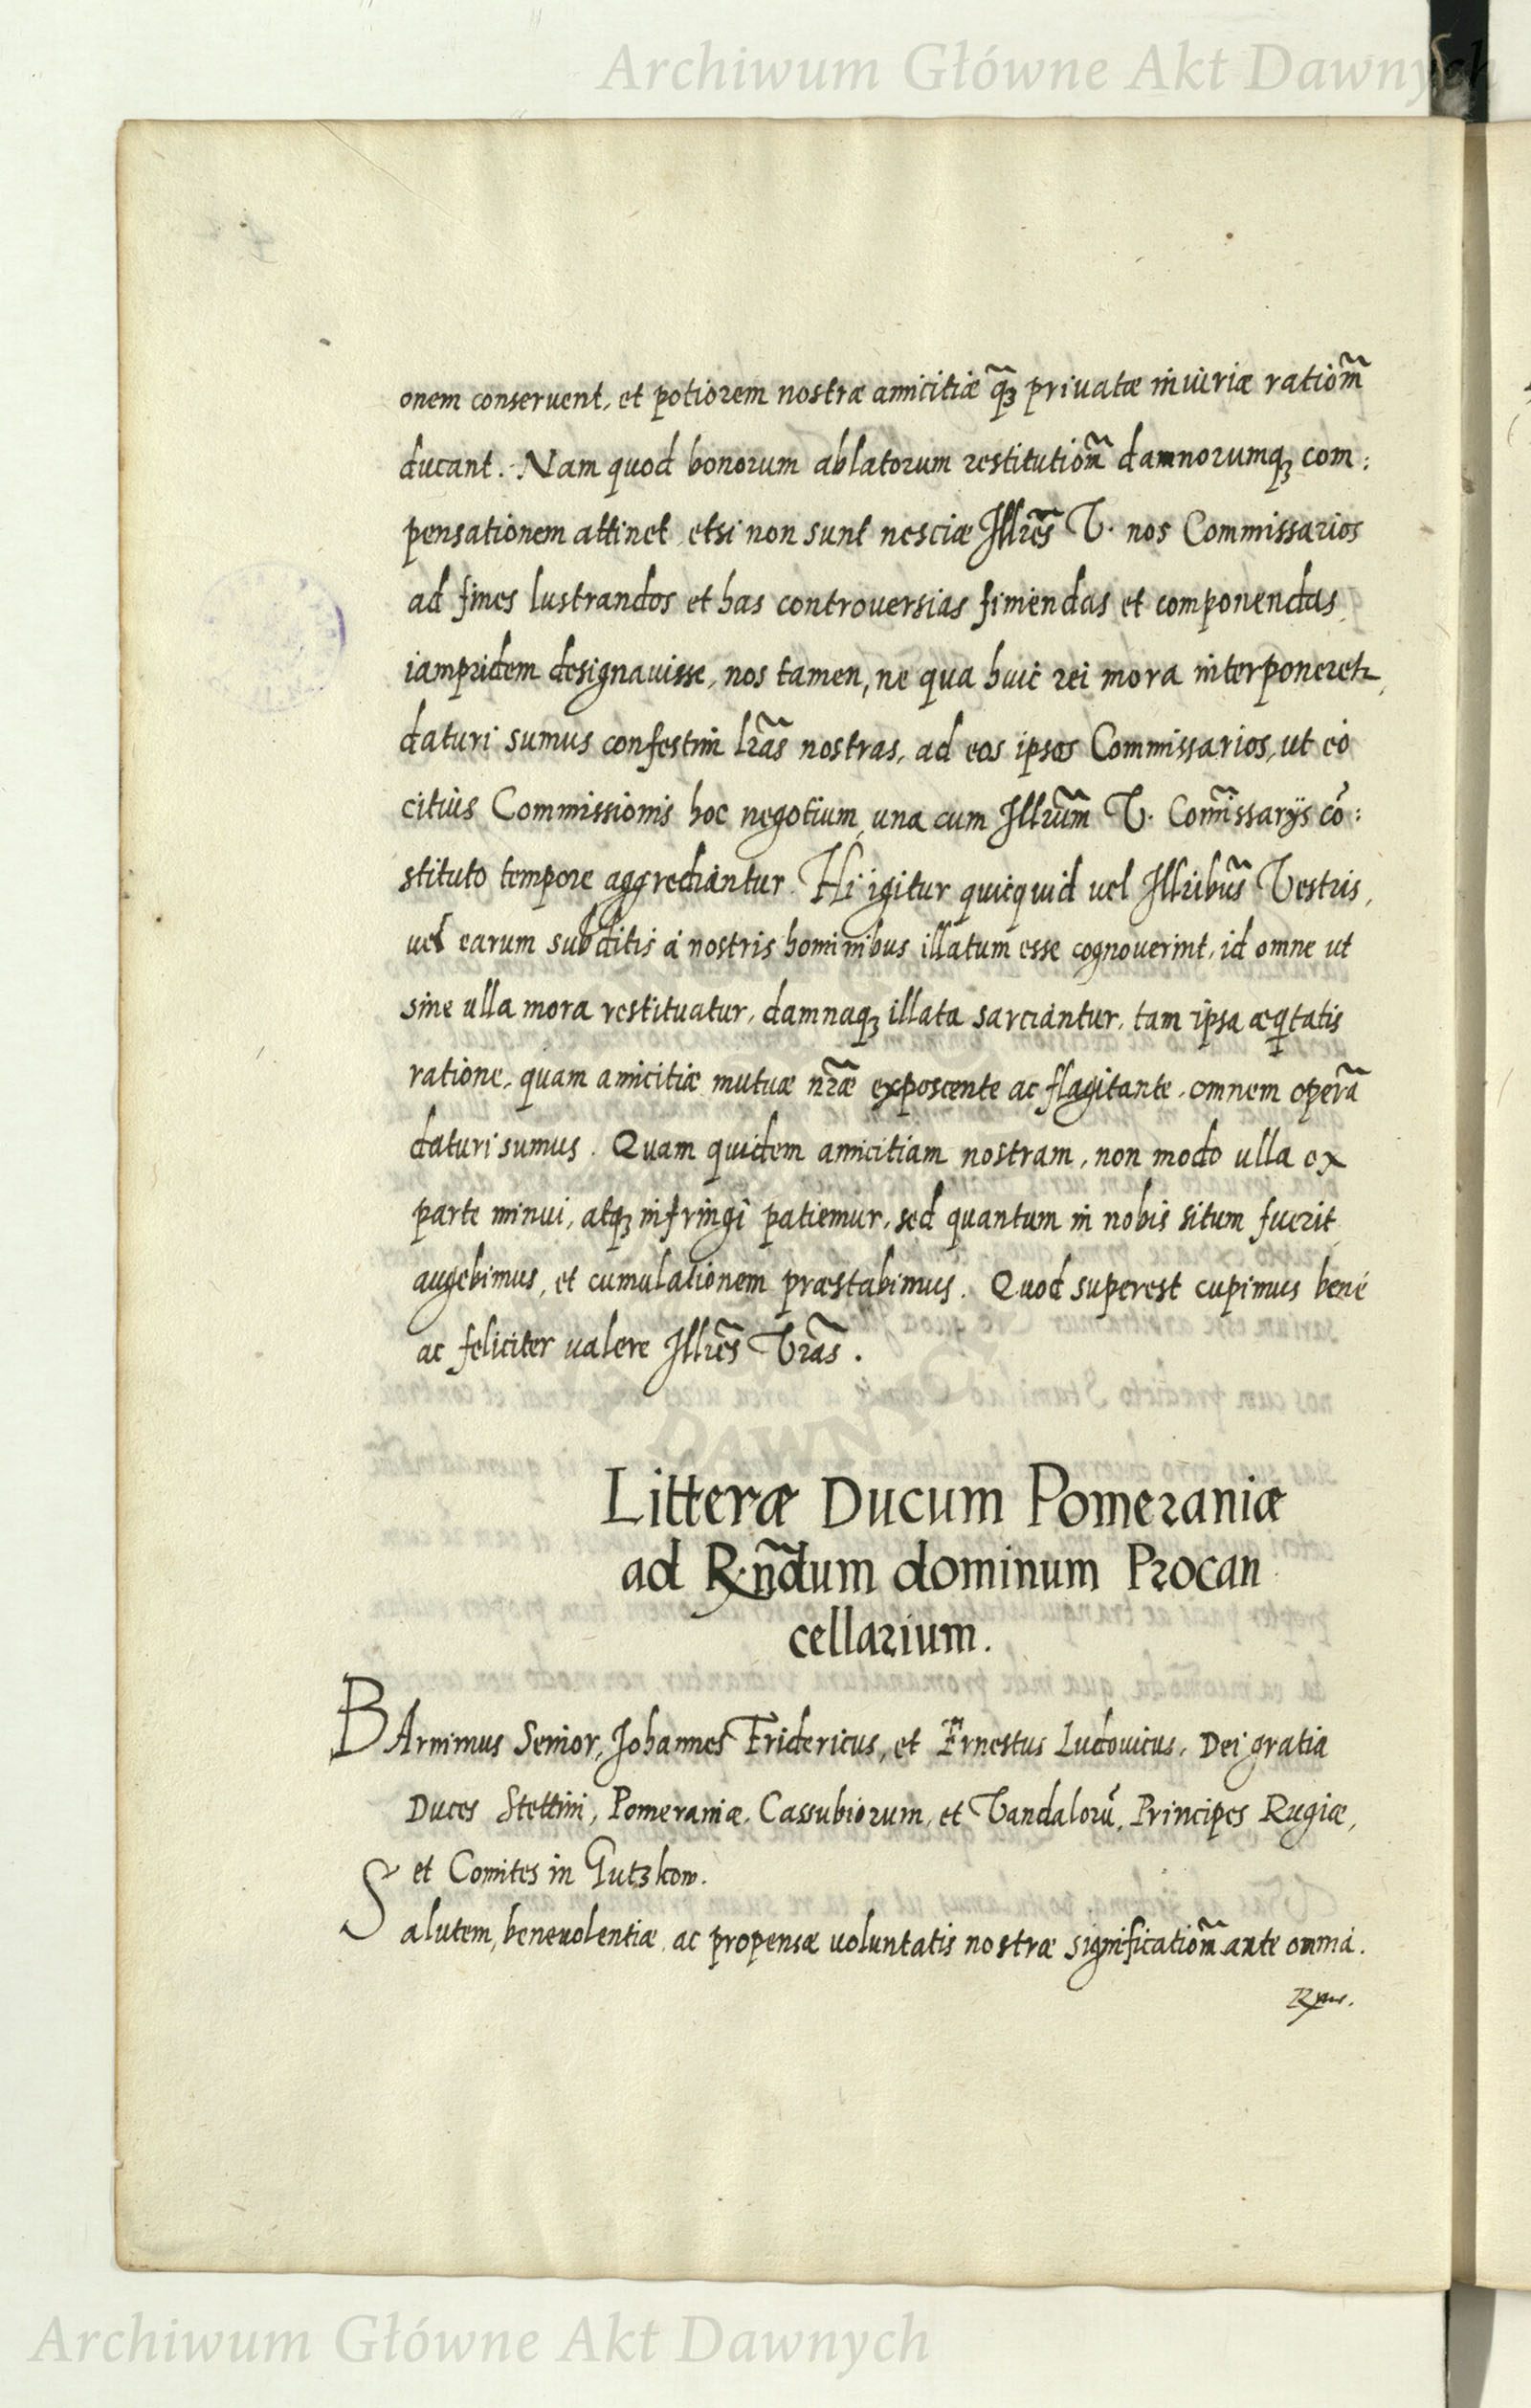 Archiwum Główne Akt Dawnych
onem conseruent, et potiorem nostræ amicitiæ q̃ꝫ priuatæ iniuriæ ratiom̃
ducant. Nam quod bonorum ablatorum restitution̄ damnorumqꝫ com:
pensationem attinet, etsi non sunt nesciæ Illres̃ V. nos Commissarios
ad fines lustrandos et has controuersias finiendas et componendas,
iampridem designauisse, nos tamen, ne qua huic rei mora interponeretꝛ,
daturi sumus confestim lr̃as nostras, ad eos ipsos Commissarios, ut eò
citius Commissionis hoc negotium, una cum Illrum̃ V. Com̃issarijs cō:
stituto tempore aggrediantur. Hi igitur quicquid uel Illribus̃ Vestris,
uel earum subditis à nostris hominibus illatum esse cognouerint, id omne ut
sine ulla mora restituatur, damnaqꝫ illata sarciantur, tam ipsa æqtatis
ratione, quam amicitiæ mutuæ nr̃æ exposcente ac flagitante, omnem operã
daturi sumus. Quam quidem amicitiam nostram, non modo ulla ex
parte minui, atqꝫ infringi patiemur, sed quantum in nobis situm fuerit,
augebimus, et cumulationem præstabimus. Quod superest cupimus benè
ac feliciter valere Illres̃ Vras̃.
Litteræ Ducum Pomeraniæ
ad R.ñdum dominum Procan
cellarium.
BArnimus Senior, Johannes Fridericus, et Ernestus Ludouicus, Dei gratia
Duces Stettini, Pomeraniæ, Cassubiorum, et Vandalorū, Principes Rugiæ,
et Comites in Gutzkow.
Salutem, beneuolentiæ, ac propensæ uoluntatis nostræ significatiom̃ ante omnia.
Archiwum Główne Akt Dawnych